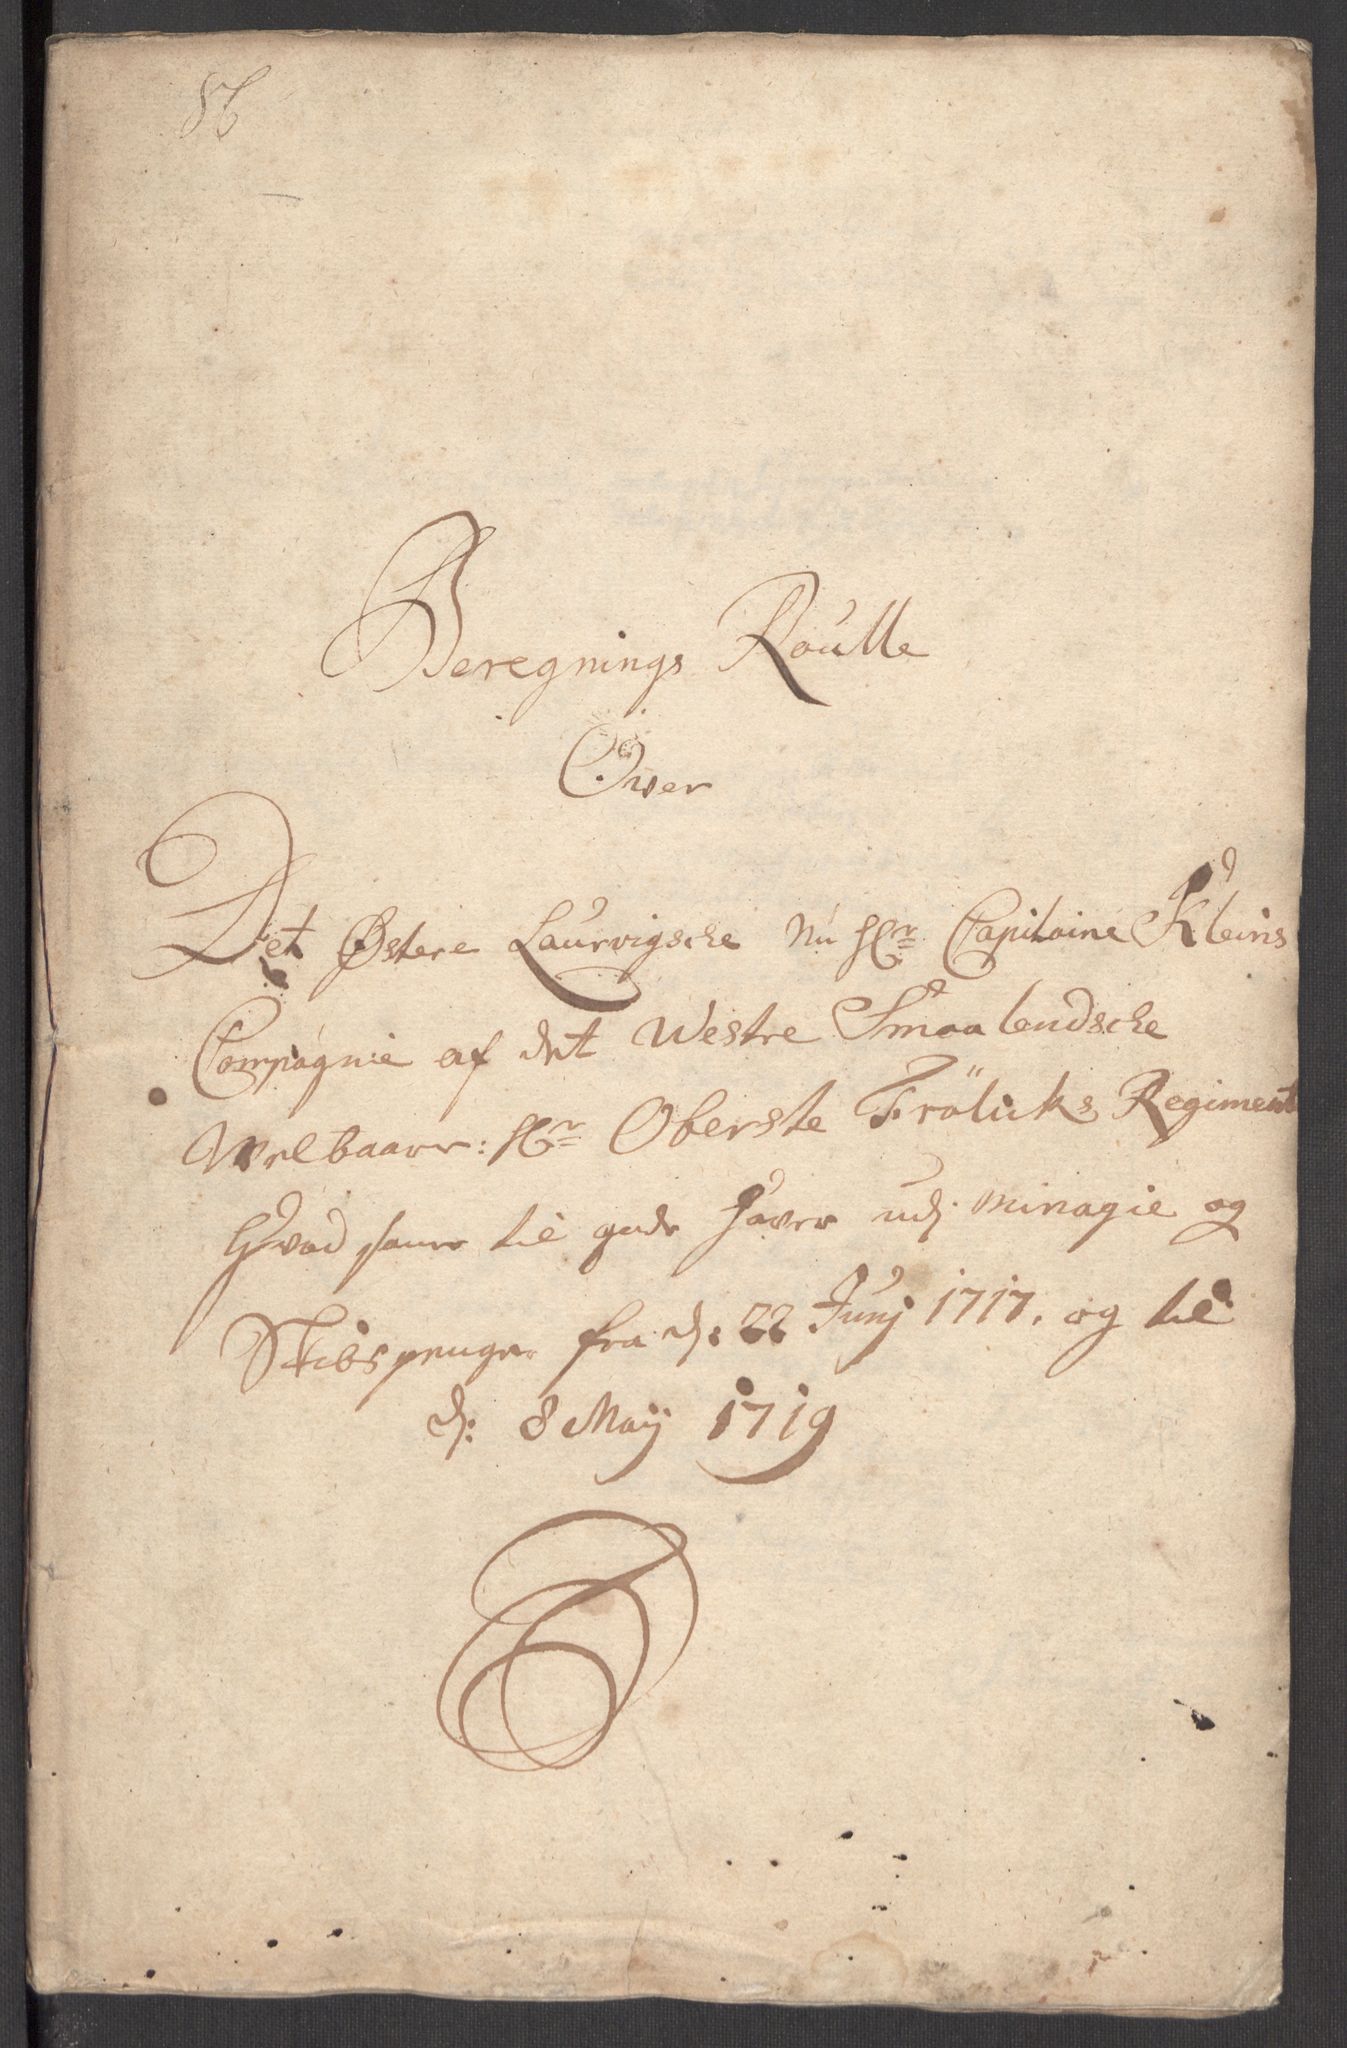 Beregnings Roulle
Over
Det Østere Laurvigsche Nu Hr: Capitaine Kleins
Compagnie af det Westre Smaalendsche
Welbaarr: Hr: Oberste Frölicks Regiment
Hvad samr til gode haver udj minagie og
Skibspenge fra d: 22 Junj 1717. og til
d: 8 Maij 1719